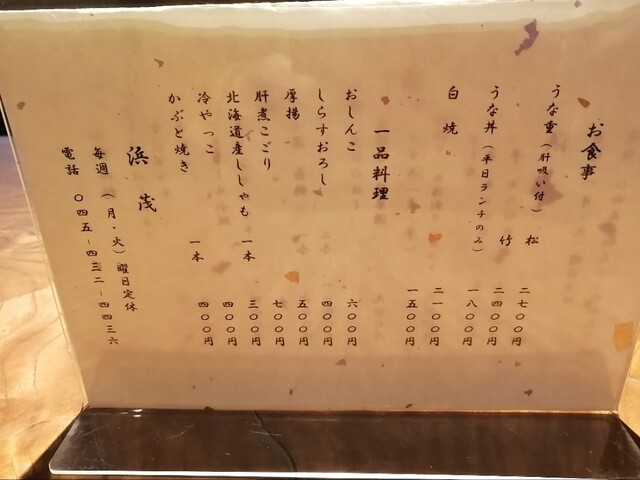 お食事
うな重（肝吸い付） 松 二七〇〇円
竹 二四〇〇円
うな丼（平日ランチのみ） 一八〇〇円
白焼 二一〇〇円
一五〇〇円
一品料理
おしんこ 六〇〇円
しらすおろし 四〇〇円
厚揚 五〇〇円
肝煮こごり 七〇〇円
北海道産ししゃも 一本 三〇〇円
冷やっこ 四〇〇円
かぶと焼き 一本 四〇〇円
浜茂
毎週（月・火）曜日定休
電話 〇四五-四三二-四四三六